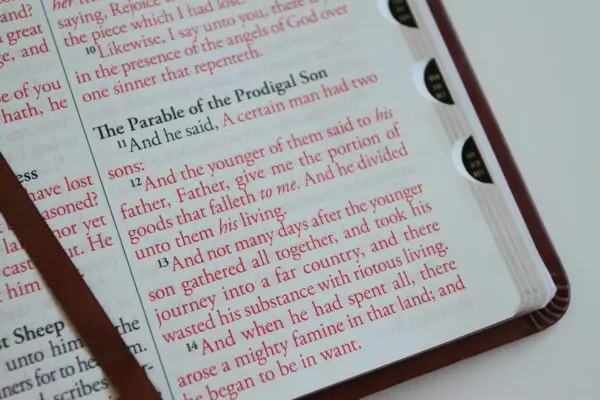 and?
great
ge, and
e of you
hath, he
ess
have lost
asoned?
not yet
cast it. He
him
st Sheep
unto him the
ners for to hear him.
scribes
her
saying, Rejoice
the piece which I had lost.
10 Likewise, I say unto you, there is joy
in the presence of the angels of God over
one sinner that repenteth.
The Parable of the Prodigal Son
11 And he said, A certain man had two
sons:
12 And the younger of them said to his
father, Father, give me the portion of
goods that falleth to me. And he divided
unto them his living.
13 And not many days after the younger
son gathered all together, and took his
journey into a far country, and there
wasted his substance with riotous living.
14 And when he had spent all, there
arose a mighty famine in that land; and
he began to be in want.